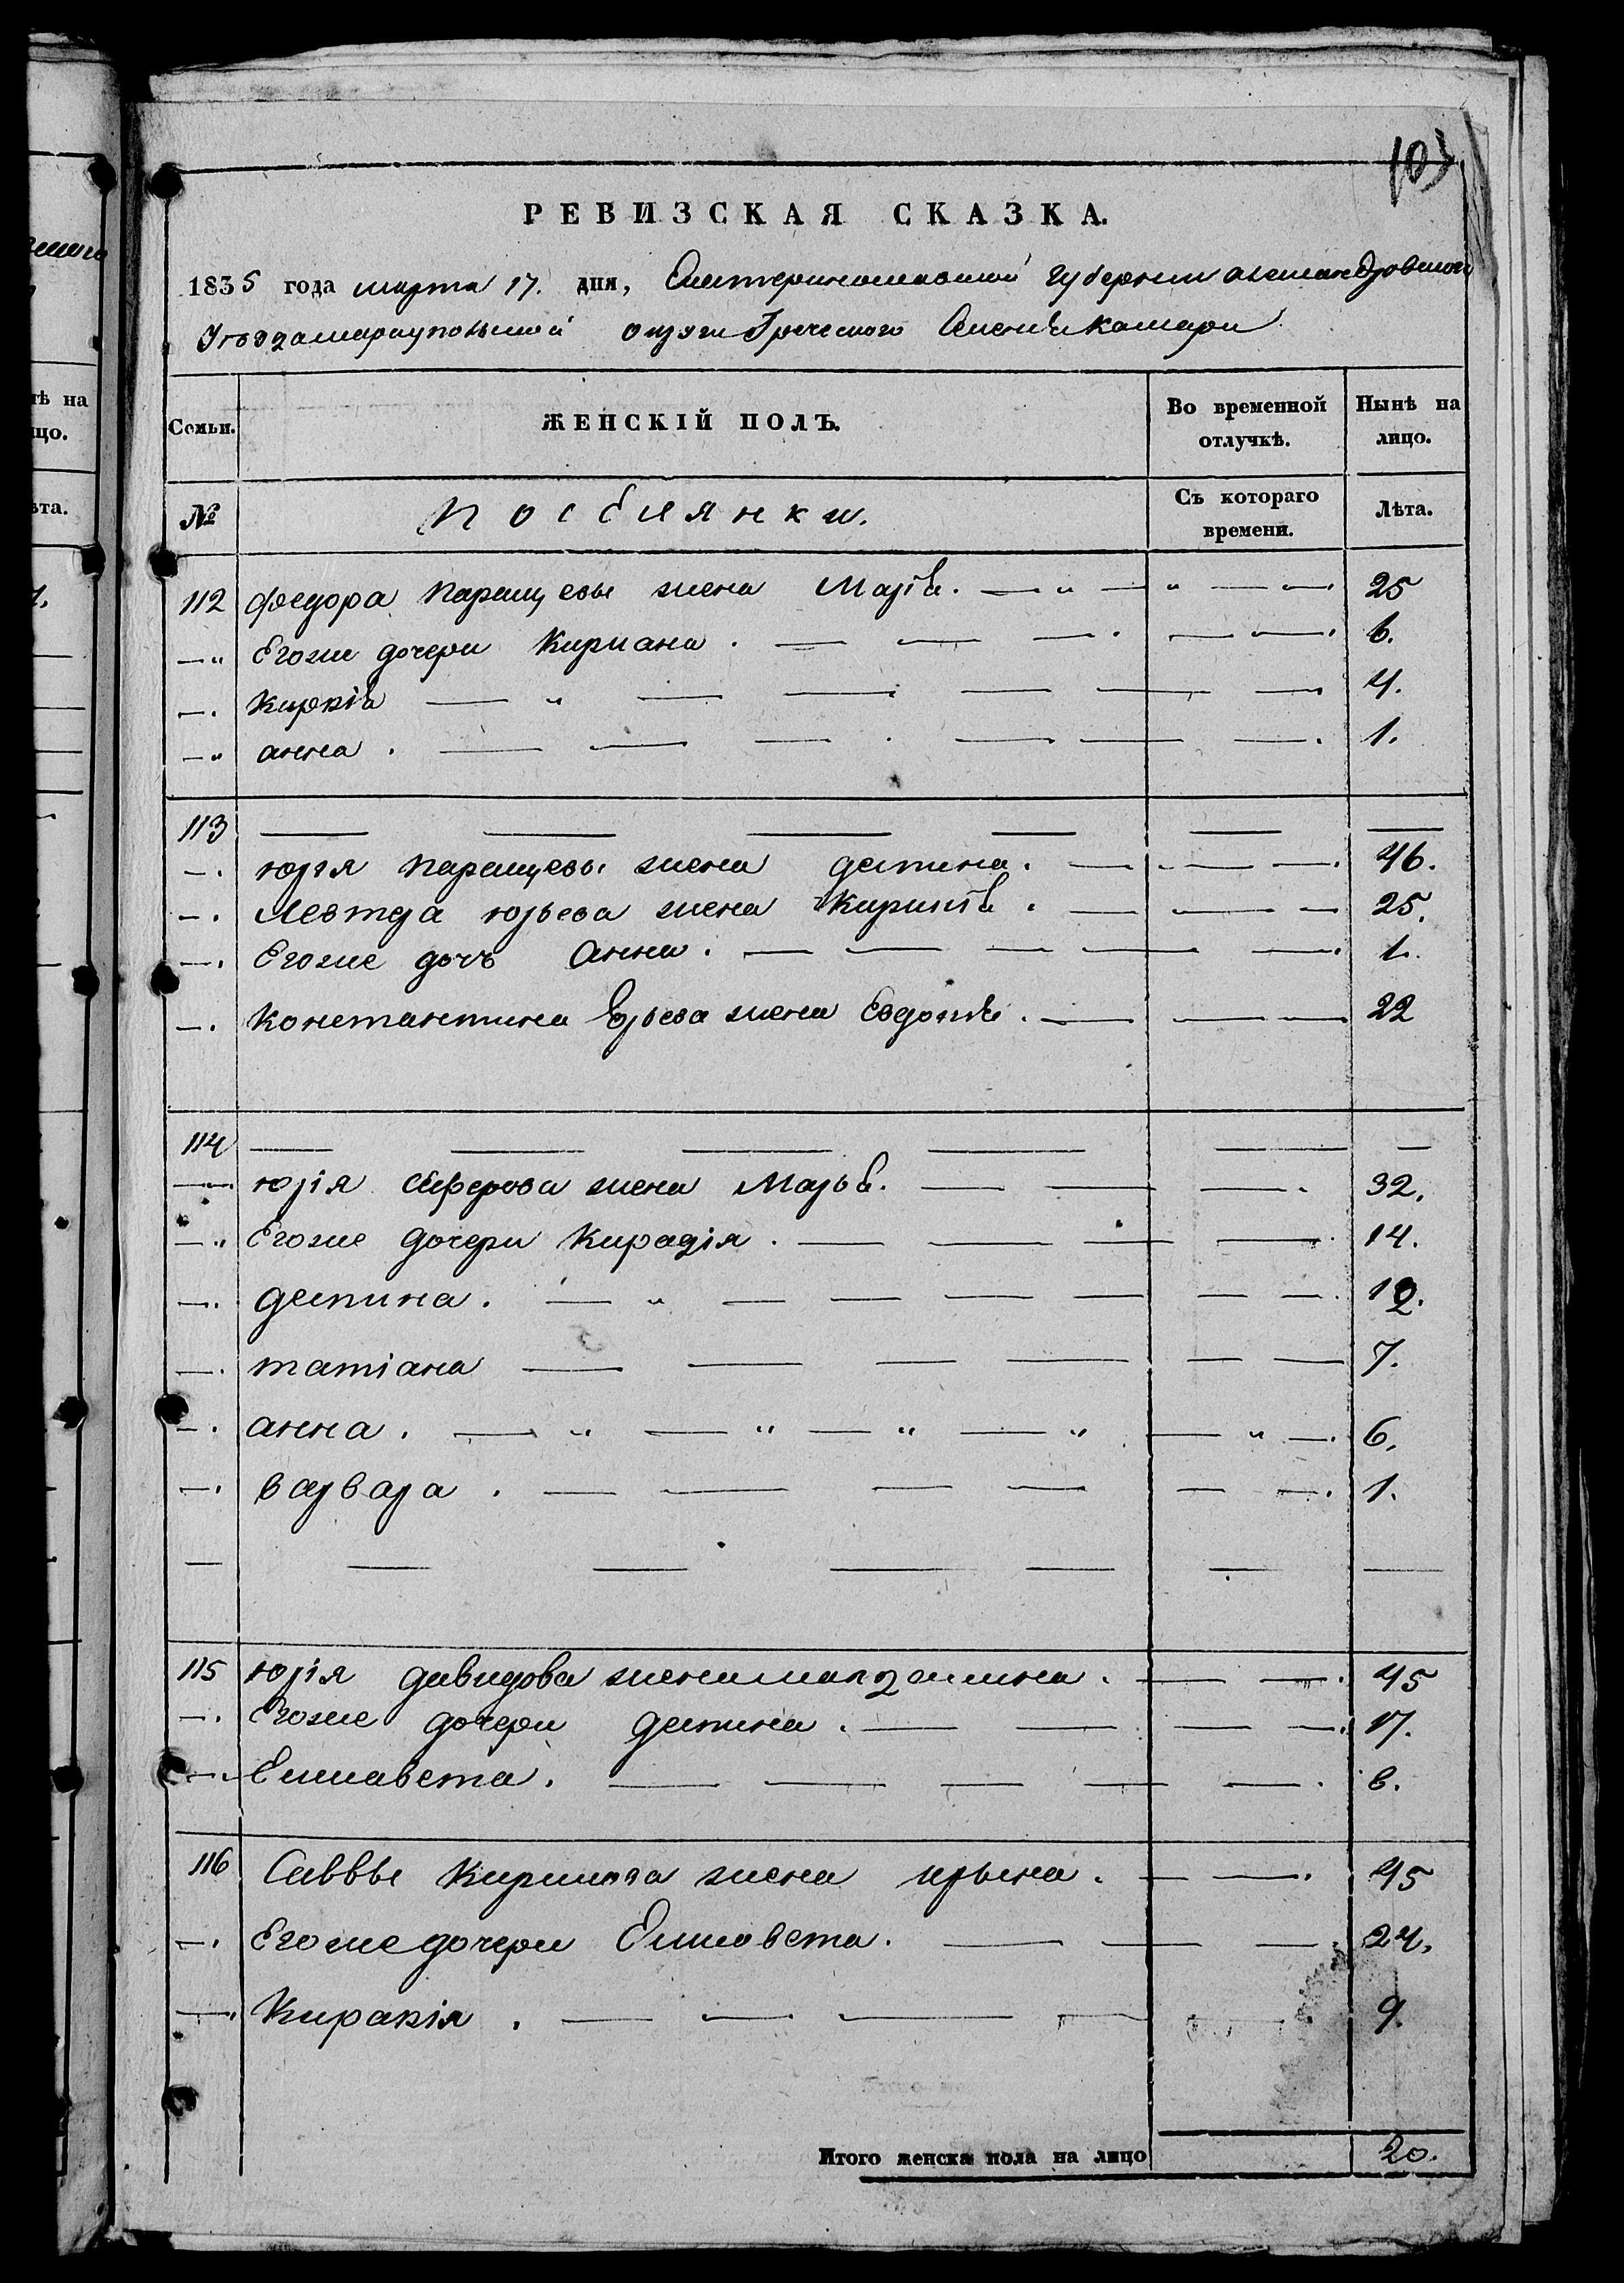 103
РЕВИЗСКАЯ СКАЗКА.
1835 года марта 17. дня, Екатеринославской губернии александровского
Уезда мариупольской округи Греческого Селения Камари
Семьи.
ЖЕНСКІЙ ПОЛЪ.
Во временной отлучкѣ.
Нынѣ на лицо.
№
Поселянки.
Съ котораго времени.
Лѣта.
112 федора Паращевы жена Маріѣ. 25
Егоже дочери Кириана. 6.
Киркіѣ 4.
анна. 1.
113
юрія Паращевы жена деспина. 46.
Левтера юрьева жена 25.
Егоже дочъ Анна. 1.
Константина Юрьева жена Евдокіѣ. 22
114
юрія Сеферова жена Марьѣ. 32.
Егоже дочери Киракія. 14.
деспина. 12.
татіана 7.
анна. 6.
варвара. 1.
115 юрія давидова жена 45
Егоже дочери деспина. 17.
Елисавета. 6.
116 Саввы Кирилова жена ирына. 45
Егоже дочери Елисовета. 24.
Киракія. 9.
Итого женска пола на лицо 20.